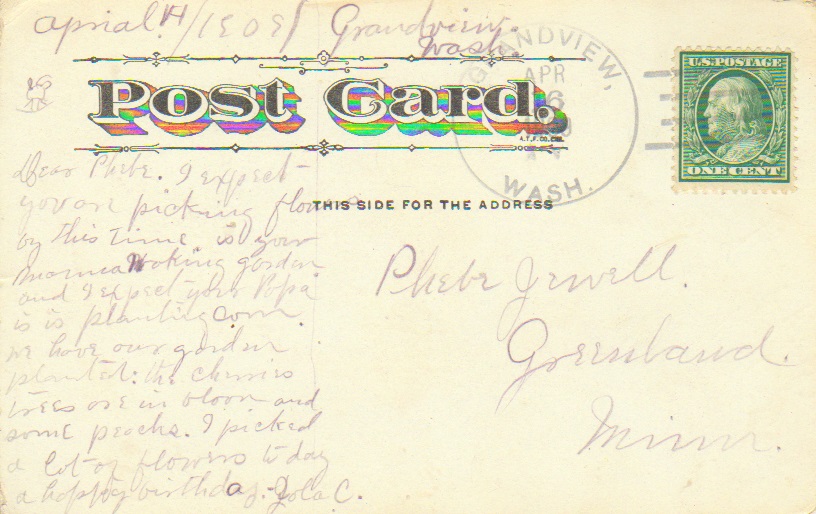 Grandview.
Wash.
GRANDVIEW,
APR
6
WASH.
U.S. POSTAGE
ONE CENT
Post Card.
THIS SIDE FOR THE ADDRESS
Dear Phebe. I expect
you are picking flowers
by this time is your
mama making garden
and I expect your Papa
is is planting corn.
we have our garden
planted: the cherries
trees are in bloom and
some peachs. I picked
a lot of flowers to day
a happy birthday. Zola C.
Phebe Jewell.
Greenland.
Minn.